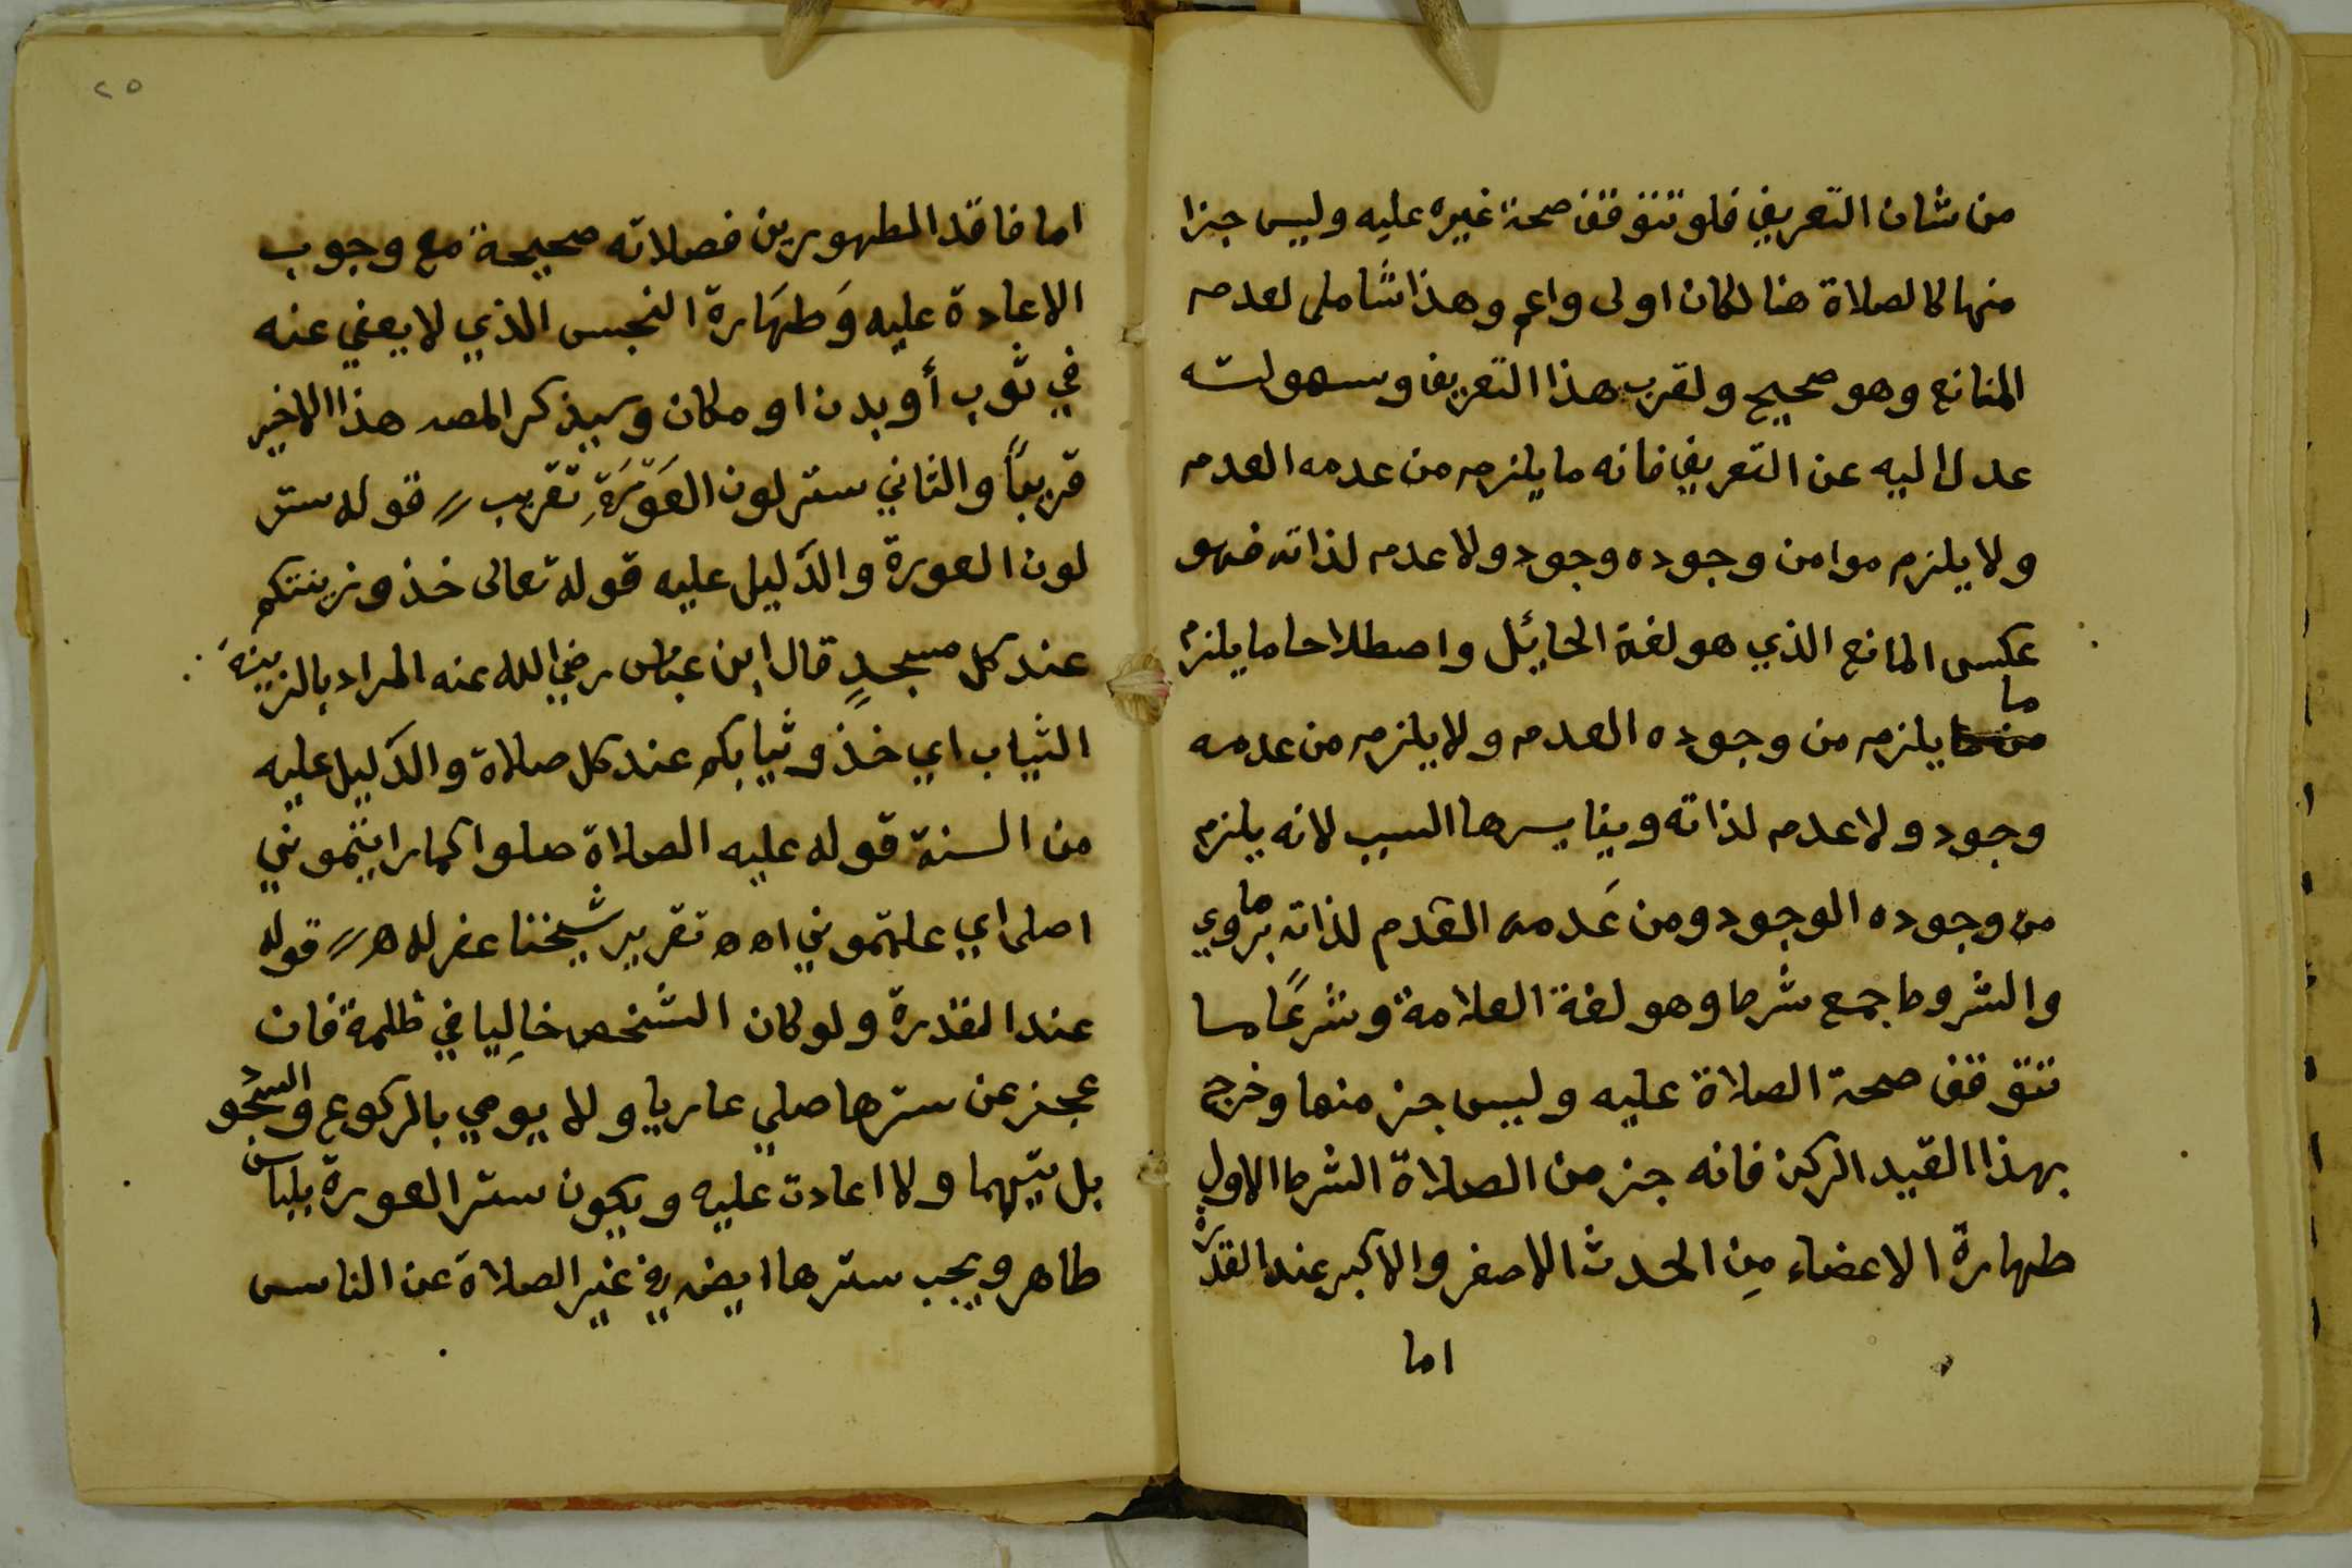 من شان التعريف فلو تتوقف صحة غيره عليه وليس جزا
منها كالصلاة هنا لكان اولى واعم وهذا شامل لعدم
المانع وهو صحيح ولقرب هذا التعريف وسهولته
عدل اليه عن التعريف فانه ما يلزم من عدمه العدم
ولا يلزم من وجوده وجود ولا عدم لذاته فهو
عكس المانع الذي هو لغة الحائل واصطلاحا ما يلزم
ما يلزم من وجوده العدم ولا يلزم من عدمه
وجود ولا عدم لذاته ويغايرها السبب لانه يلزم
من وجوده الوجود ومن عَدمه العدم لذاته
والشروط جمع شرط وهو لغة العلامة وشرعًا ما
تتوقف صحة الصلاة عليه وليس جز منها وخرج
بهذا القيد الركن فانه جز من الصلاة الشرط الاول
طهارة الاعضاء مِن الحدث الاصغر والاكبر عند القدرة
اما
٢٥
اما فاقد الطهورين فصلاته صحيحة مع وجوب
الاعادة عليه وَطهَارة النجس الذي لا يعفي عنه
في ثوب أو بدن او مكان وسيذكر المصـ هذا الاخير
قريبًا والثاني ستر لون العَوّرَةِ تقريب // قوله ستر
لون العورة والدَليل عليه قوله تعالى خذو زينتكم
عند كل مسجدٍ قال ابن عباس رضي الله عنه المراد بالزينة
الثياب اي خذو ثيابكم عند كل صلاة والدَليل عليه
من السنة قوله عليه الصلاة صلوا كما رايتموني
اصلى اي علمتموني اهـ تقرير شيخنا غفر له هـ // قوله
عند القدرة ولو كان الشخص خاِليا في ظلمة فان
عجز عن سترها صلي عاريا ولا يومي بالركوع والسجود
بل يتمهما ولا اعادت عليه ويكون ستر العورة بلباس
طاهر ويجب سترها ايضـ في غير الصلاة عن الناس